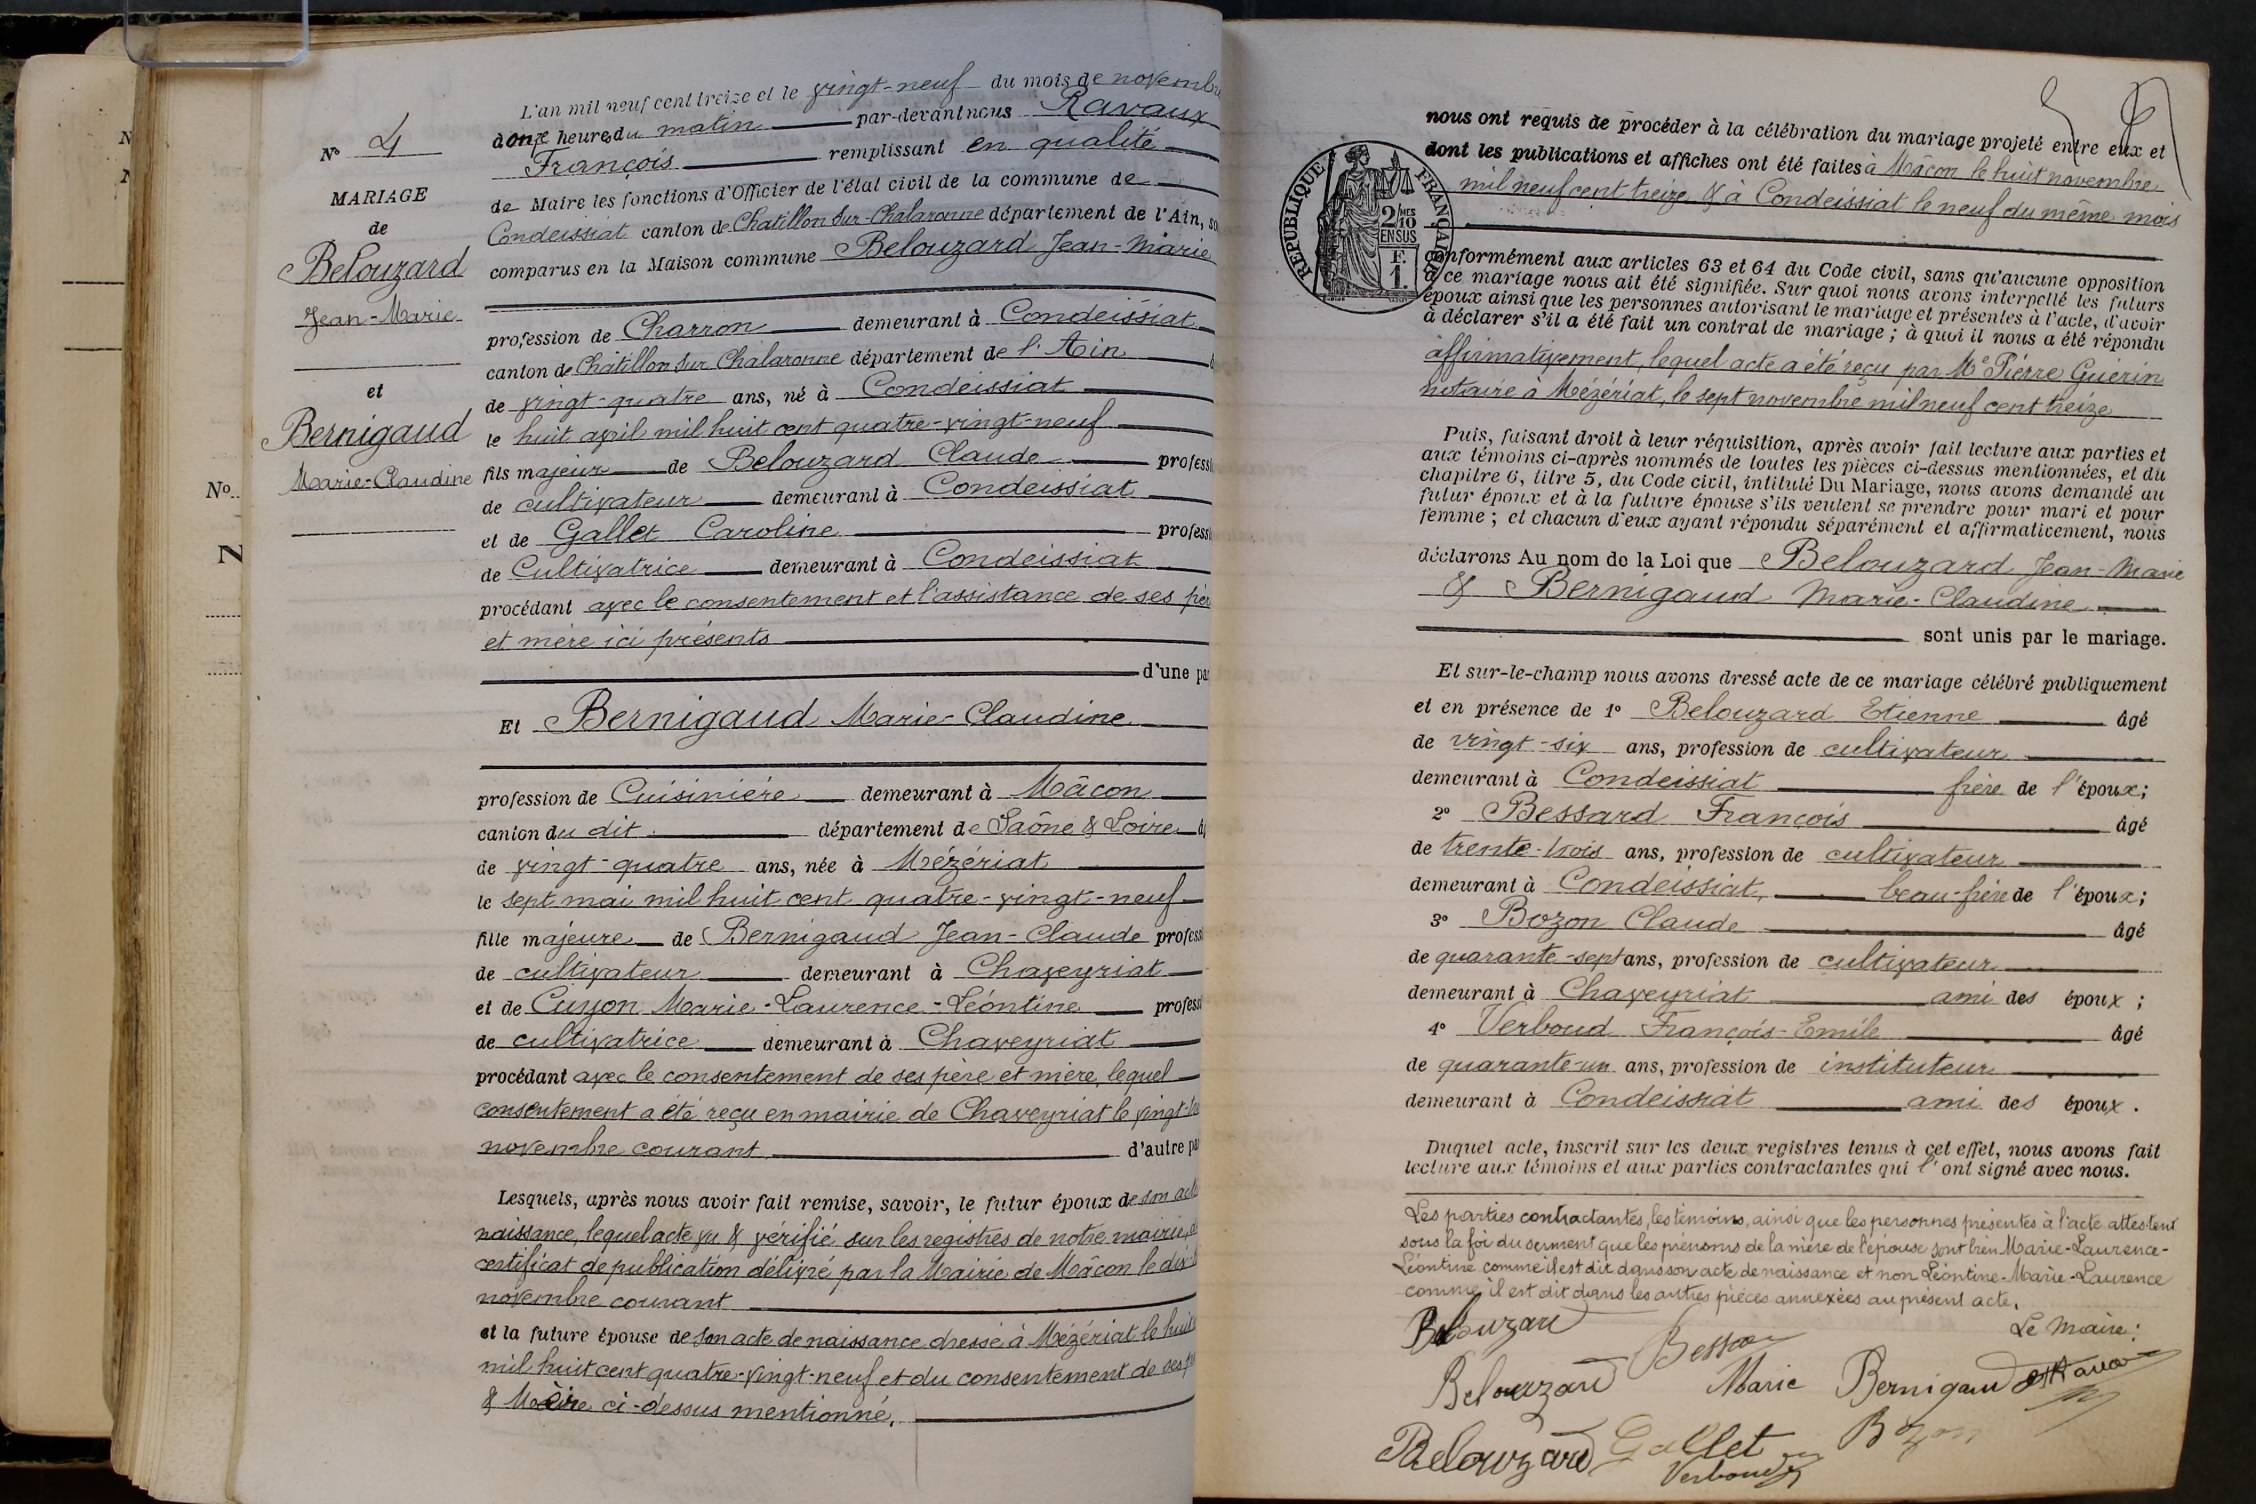 L'an mil neuf cent treize et le vingt-neuf du mois de novembre
à onze heures du matin par-devant nous Ravaux
François remplissant en qualité
de Maire les fonctions d'Officier de l'état civil de la commune de
Condeissiat canton de Chatillon sur-Chalaronne département de l'Ain, so
comparus en la Maison commune Belouzard Jean-Marie
profession de Charron demeurant à Condeissiat
canton de Châtillon sur Chalaronne département de l'Ain
de vingt-quatre ans, né à Condeissiat
le huit avril mil huit cent quatre-vingt-neuf
fils majeur de Belouzard Claude profess
de cultivateur demeurant à Condeissiat
et de Gallet Caroline profess
de Cultivatrice demeurant à Condeissiat
procédant avec le consentement et l'assistance de ses pèr
et mère ici présents
d'une par
Et Bernigaud Marie-Claudine
profession de Cuisinière demeurant à Mâcon
canton du dit département de Saône & Loire
de vingt-quatre ans, née à Mézériat
le sept mai mil huit cent quatre-vingt-neuf
fille majeure de Bernigaud Jean-Claude profess
de cultivateur demeurant à Chaveyriat
et de Guyon Marie-Laurence-Léontine profess
de cultivatrice demeurant à Chaveyriat
procédant avec le consentement de ses père et mère, lequel
consentement a été reçu en mairie de Chaveyriat le vingt-
novembre courant d'autre pa
Lesquels, après nous avoir fait remise, savoir, le futur époux de son acte
naissance, lequel acte vu & vérifié sur les registres de notre mairie,
certificat de publication délivré par la Mairie de Mâcon le dix
novembre courant
et la future épouse de son acte de naissance dressé à Mézériat le huit
mil huit cent quatre-vingt-neuf et du consentement de ses
& Mère ci-dessus mentionné.
N° 4
MARIAGE
de
Belouzard
Jean-Marie
et
Bernigaud
Marie-Claudine
N°
N
nous ont requis de procéder à la célébration du mariage projeté entre eux et
dont les publications et affiches ont été faites à Mâcon le huit novembre
mil neuf cent treize & à Condeissiat le neuf du même mois
RÉPUBLIQUE FRANÇAISE
2/10MES
EN SUS
F.
1.
conformément aux articles 63 et 64 du Code civil, sans qu'aucune opposition
à ce mariage nous ait été signifiée. Sur quoi nous avons interpellé les futurs
époux ainsi que les personnes autorisant le mariage et présentes à l'acte, d'avoir
à déclarer s'il a été fait un contrat de mariage ; à quoi il nous a été répondu
affirmativement, lequel acte a été reçu par Me Pierre Guérin
notaire à Mézériat, le sept novembre mil neuf cent treize
Puis, faisant droit à leur réquisition, après avoir fait lecture aux parties et
aux témoins ci-après nommés de toutes les pièces ci-dessus mentionnées, et du
chapitre 6, titre 5, du Code civil, intitulé Du Mariage, nous avons demandé au
futur époux et à la future épouse s'ils veulent se prendre pour mari et pour
femme ; et chacun d'eux ayant répondu séparément et affirmativement, nous
déclarons Au nom de la Loi que Belouzard Jean-Marie
& Bernigaud Marie-Claudine
sont unis par le mariage.
Et sur-le-champ nous avons dressé acte de ce mariage célébré publiquement
et en présence de 1° Belouzard Etienne âgé
de vingt-six ans, profession de cultivateur
demeurant à Condeissiat frère de l'époux ;
2° Bessard François âgé
de trente-trois ans, profession de cultivateur
demeurant à Condeissiat, beau-frère de l'époux ;
3° Bozon Claude âgé
de quarante-sept ans, profession de cultivateur
demeurant à Chaveyriat ami des époux ;
4° Verboud François-Emile âgé
de quarante-un ans, profession de instituteur
demeurant à Condeissiat ami des époux .
Duquel acte, inscrit sur les deux registres tenus à cet effet, nous avons fait
lecture aux témoins et aux parties contractantes qui l'ont signé avec nous.
Les parties contractantes, les témoins, ainsi que les personnes présentes à l'acte attestent
sous la foi du serment que les prénoms de la mère de l'épouse sont bien Marie-Laurence-
Léontine comme il est dit dans son acte de naissance et non Léontine-Marie-Laurence
comme il est dit dans les autres pièces annexées au présent acte.
Belouzard
Le Maire :
Belouzard Marie Bernigaud
Belouzard Gallet Bozon
Verboud